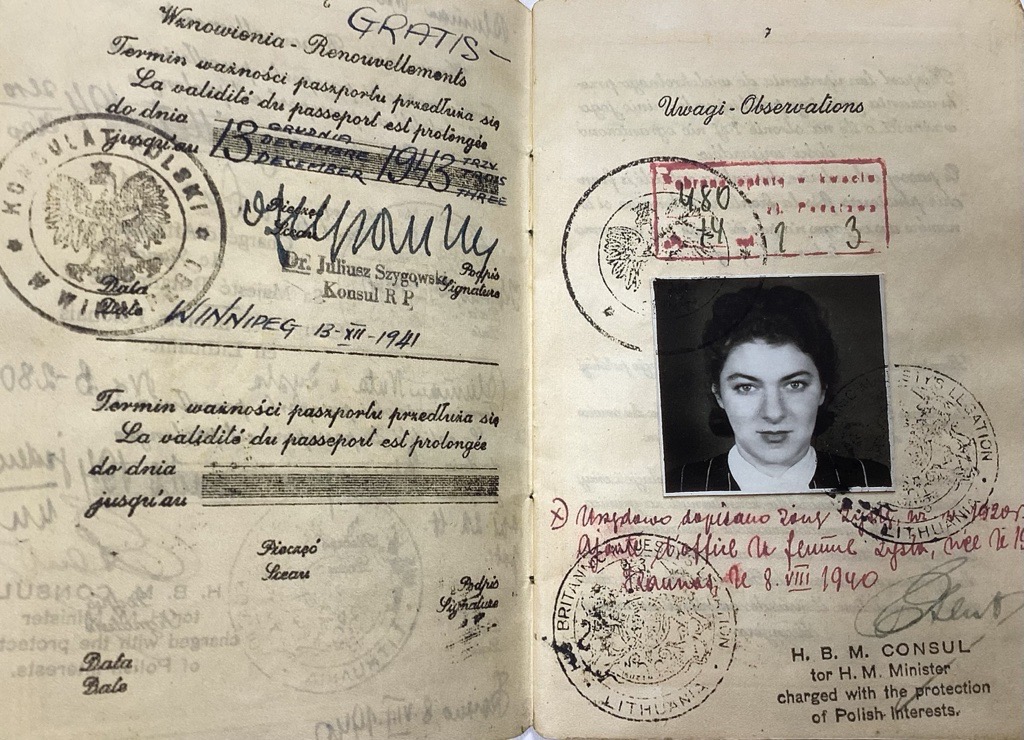 GRATIS -
Wznowienia - Renouvellements
Termin ważności paszportu przedłuża się
La validité du passeport est prolongée
do dnia
jusqu'au
13 GRUDNIA DECEMBRE DECEMBER 1943 TRZY TROIS THREE
KONSULAT POLSKI
Pieczęć
Sceau
Podpis
Signature
Dr. Juliusz Szygowski
Konsul R P
Data
Date
WINNIPEG 13-XII-1941
Termin ważności paszportu przedłuża się
La validité du passeport est prolongée
do dnia
jusqu'au
Pieczęć
Sceau
Podpis
Signature
Data
Date
7
Uwagi - Observations
Pobrano opłatę w kwocie
480
74 1 3
LITHUANIA
X) Urzędowo dopisano żonę 1920
Ajouté d'office la femme née le
Kaunas, le 8. VIII 1940
BRITANNIC
LITHUANIA
H. B. M. CONSUL
for H. M. Minister
charged with the protection
of Polish Interests.